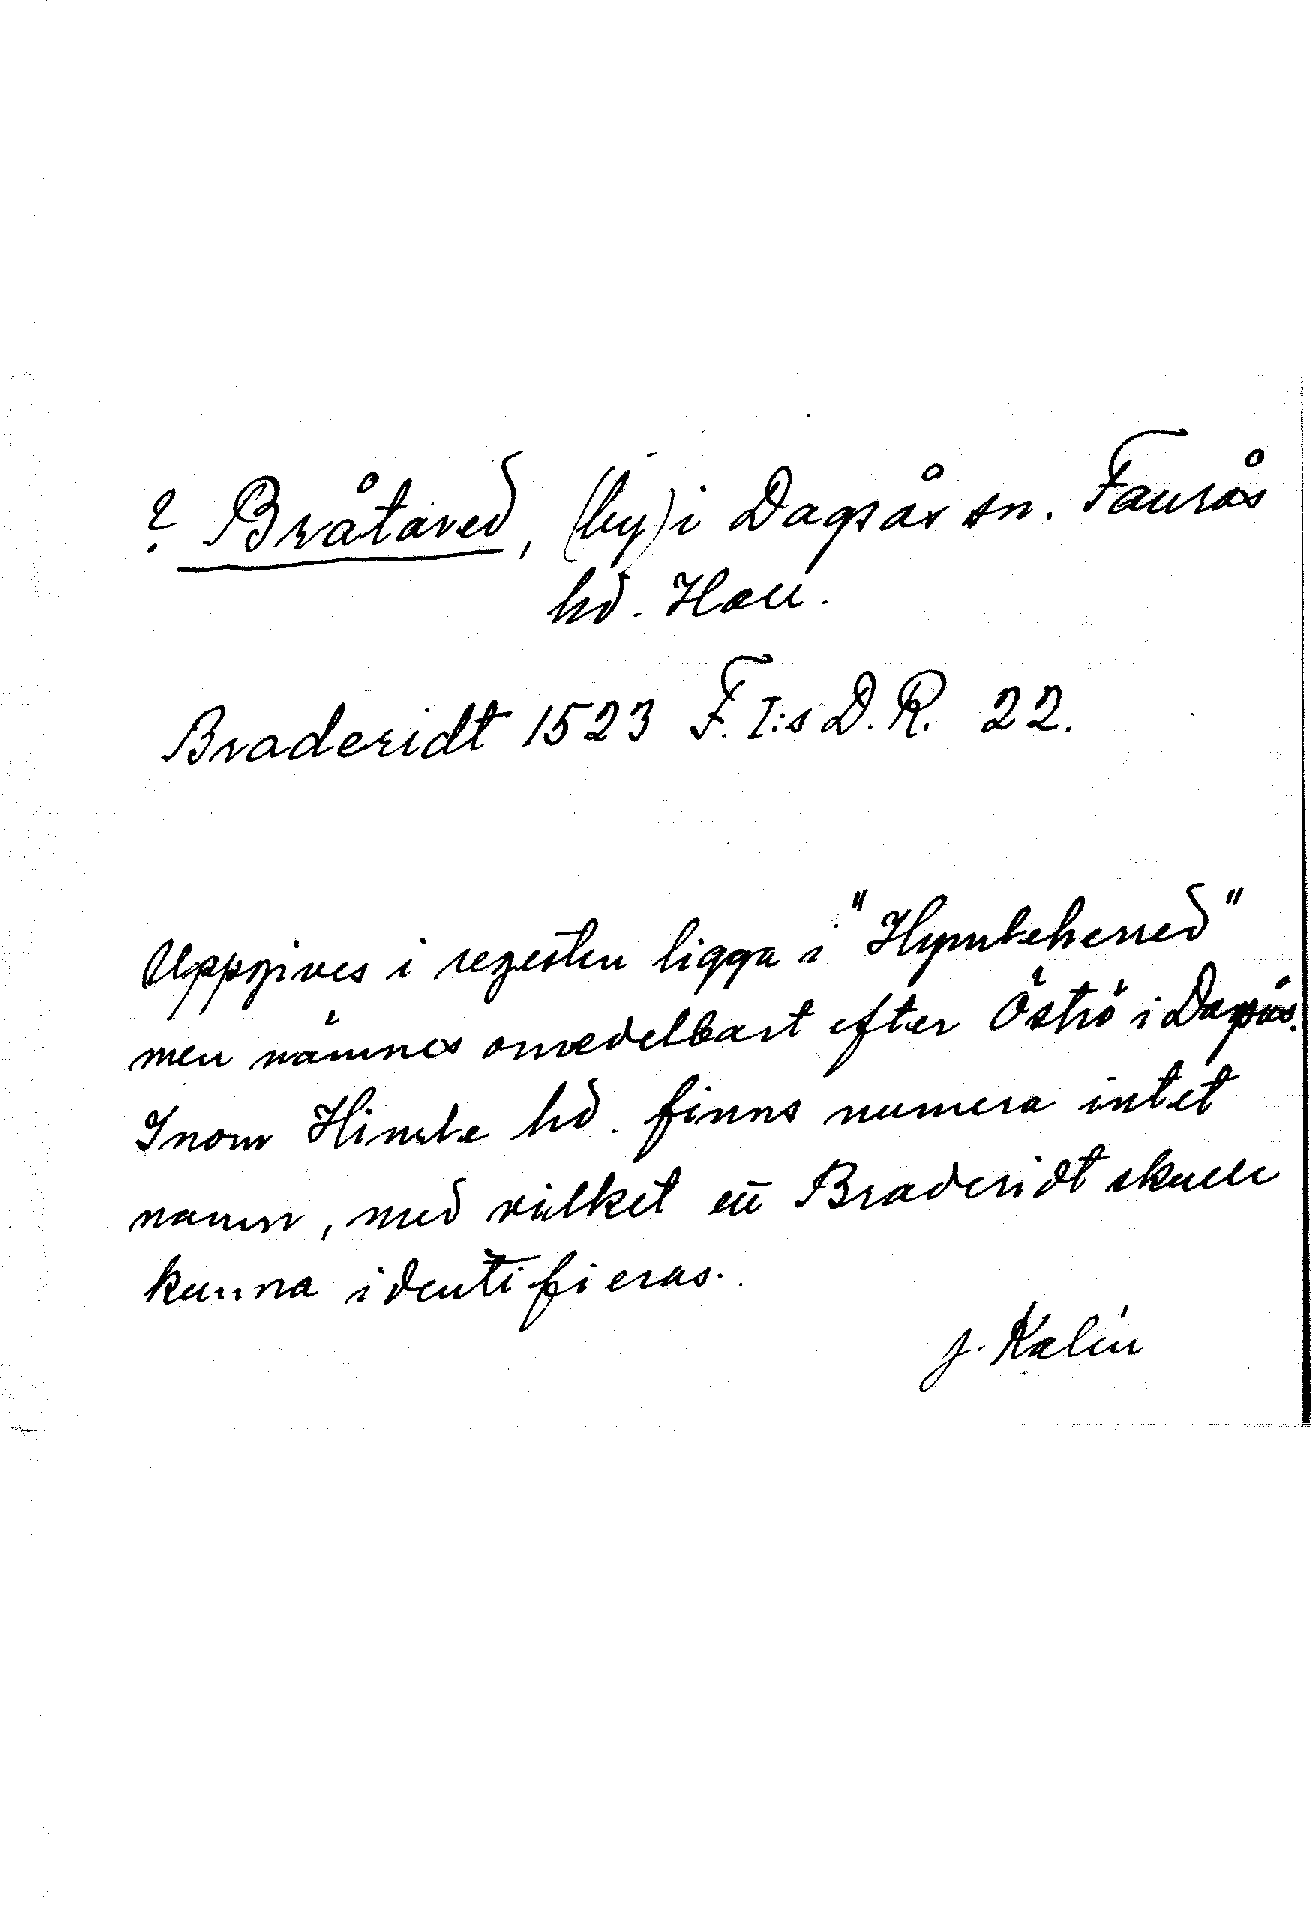 ? Bråtared, (by) i Dagsås sn. Faurås
hd. Hall.
Braderidt 1523 F. I:s D. R. 22.
Uppgives i regesten ligga i "Hymleherred"
men nämnes omedelbart efter Öströ i Dagsås.
Inom Himle hd. finns numera intet
namn, med vilket ett Braderidt skulle
kunna identifieras.
J. Kalén